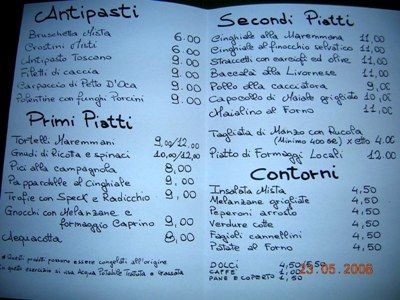 Antipasti
Bruschetta Mista 6.00
Crostini Misti 6.00
Antipasto Toscano 9.00
Filetti di caccia 9.00
Carpaccio di Petto D'Oca 9.00
Polentine con funghi Porcini 9.00
Primi Piatti
Tortelli Maremmani 9,00/12,00
Gnudi di Ricotta e spinaci 10,00/12,00
Pici alla campagnola 8,00
Papparotelle al Cinghiale 9,00
Trofie con Speck e Radicchio 9,00
Gnocchi con Melanzane e
formaggio Caprino 9,00
Acquacotta 8,00
* Questi prodotti possono essere congelati all'origine
In questo esercizio si usa Acqua Potabile Trattata e Gassata
Secondi Piatti
Cinghiale alla Maremmana 11,00
Cinghiale al finocchio selvatico 11,00
Straccetti con carciofi ed olive 11,00
Baccalà alla Livornese 11,00
Pollo alla cacciatora 9,00
Capocollo di Maiale grigliato 10,00
Maialino al Forno 11,00
Tagliata di Manzo con Rucola
(Minimo 400 gr) x etto 4.00
Piatto di Formaggi Locali 12.00
Contorni
Insalata Mista 4,50
Melanzane grigliate 4,50
Peperoni arrosto 4,50
Verdure cotte 4,50
Fagioli cannellini 4,50
Patate al Forno 4,50
DOLCI 4,50/5,50
CAFFE 1,00
PANE E COPERTO 1,50
23.05.2006